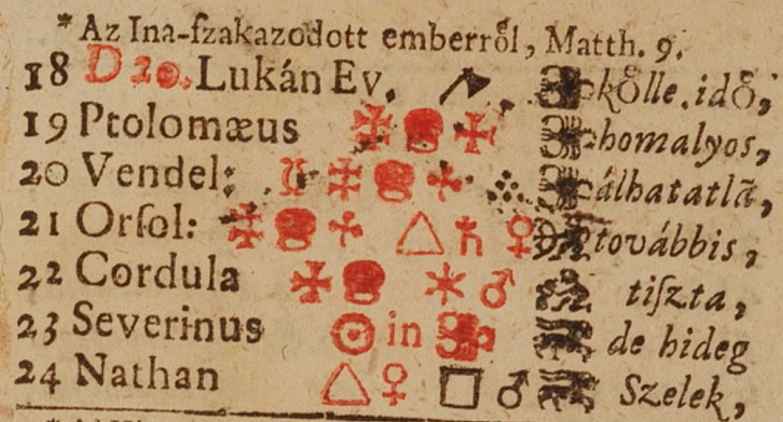 *Az Ina-ſzakazodott emberről, Matth. 9.
18 D 20. Lukán Ev. kölle. idő,
19 Ptolomæus homalyos,
20 Vendel: álhatatlã,
21 Orſol: △ ♄ ♀ továbbis,
22 Cordula ✶ ♂ tiſzta,
23 Severinus ☉ in de hideg
24 Nathan △ ♀ □ ♂ Szelek,